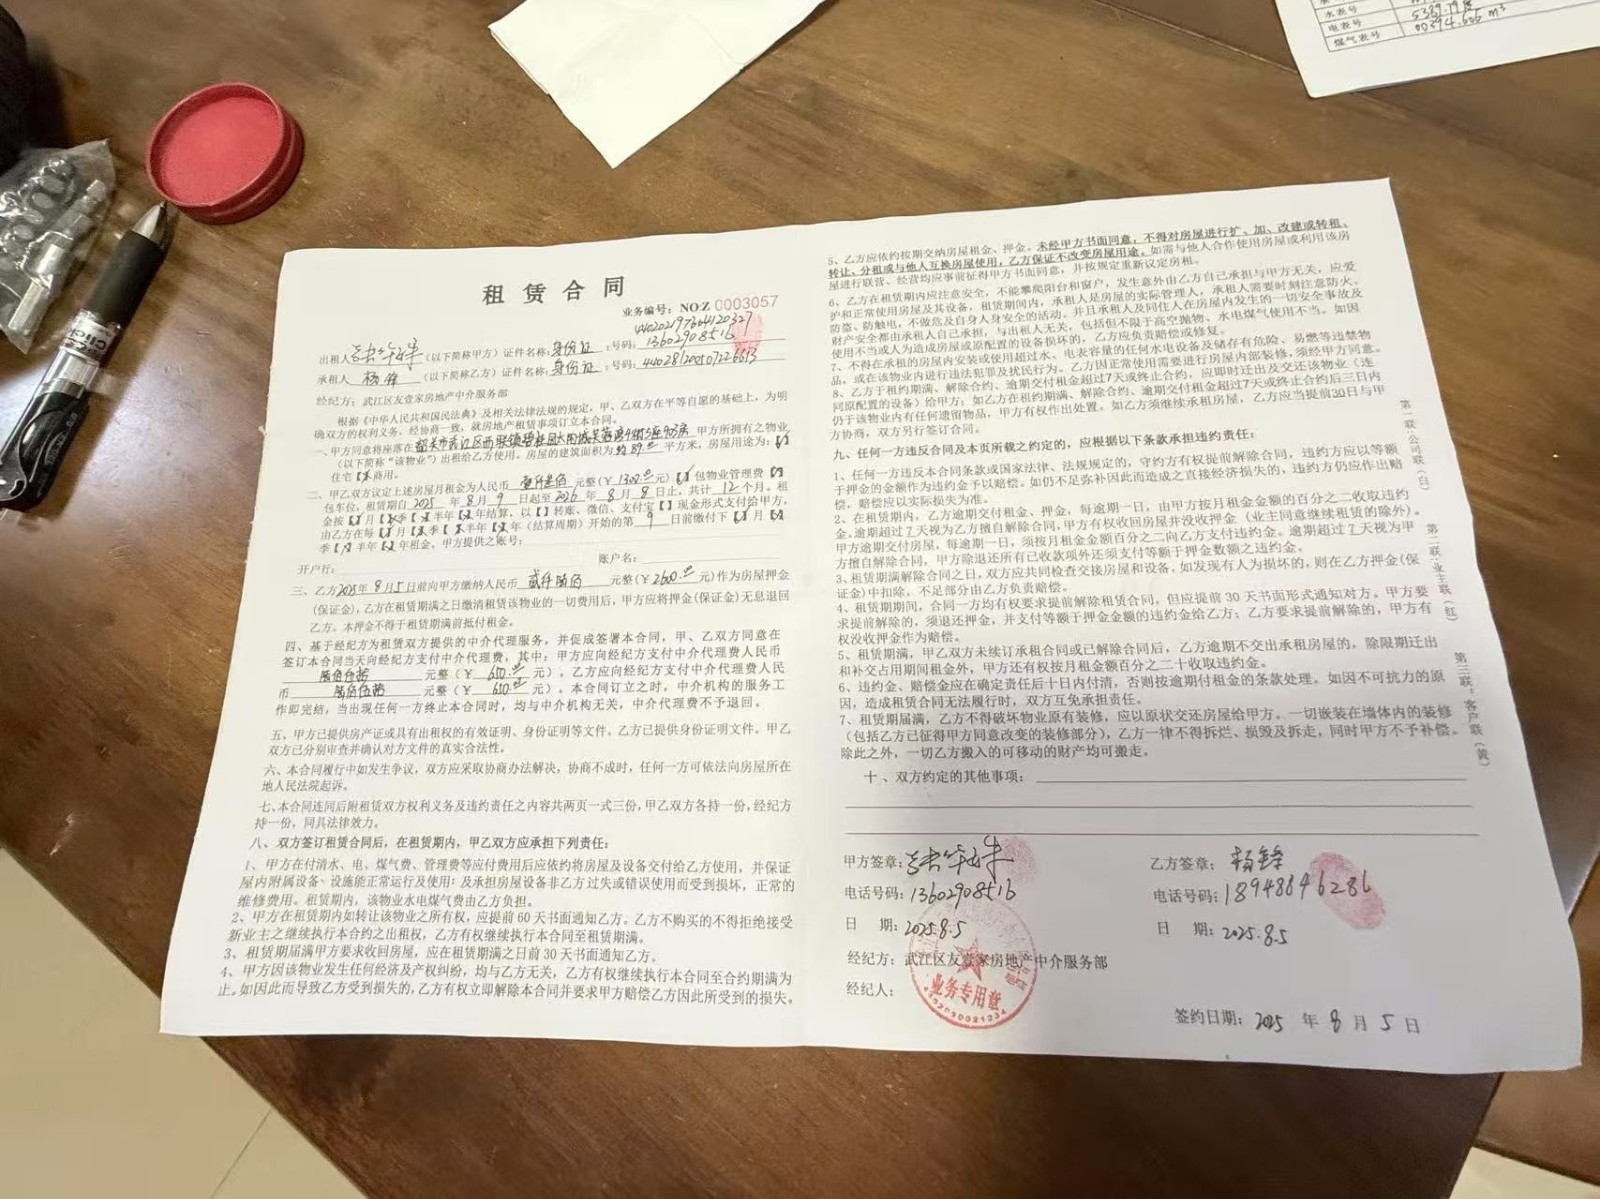 水表号
电表号 5389.79度
煤气表号 00394.606 m³
租 赁 合 同
业务编号：NO:Z 0003057
出租人（以下简称甲方）证件名称：身份证：号码：440202197604120327
13602908516
承租人 杨锋（以下简称乙方）证件名称：身份证：号码：
经纪方：武江区友壹家房地产中介服务部
根据《中华人民共和国民法典》及相关法律法规的规定，甲、乙双方在平等自愿的基础上，为明
确双方的权利义务，经协商一致，就房地产租赁事项订立本合同。
一、甲方同意将座落在韶关市武江区西联镇碧桂园 甲方所拥有之物业
（以下简称“该物业”）出租给乙方使用。房屋的建筑面积为 89 平方米，房屋用途为：【】
住宅【】商用。
二、甲乙双方议定上述房屋月租金为人民币 壹仟叁佰 元整（￥1300.00元）【】包物业管理费【】
包车位，租赁期自2025年8月9日起至2026年8月8日止，共计12个月。租
金按【】月【】季【】半年【】年结算，以【】转账、微信、支付宝【】现金形式支付给甲方，
由乙方在每【】月【】季【】半年【】年（结算周期）开始的第9日前缴付下【】月【】
季【】半年【】年租金，甲方提供之账号：
开户行： 账户名：
三、乙方2025年8月5日前向甲方缴纳人民币 贰仟陆佰 元整（￥2600.00元）作为房屋押金
（保证金），乙方在租赁期满之日缴清租赁该物业的一切费用后，甲方应将押金（保证金）无息退回
乙方。本押金不得于租赁期满前抵付租金。
四、基于经纪方为租赁双方提供的中介代理服务，并促成签署本合同，甲、乙双方同意在
签订本合同当天向经纪方支付中介代理费，其中：甲方应向经纪方支付中介代理费人民币
陆佰伍拾 元整（￥650.00元）。乙方应向经纪方支付中介代理费人民
币 陆佰伍拾 元整（￥650.00元）。本合同订立之时，中介机构的服务工
作即完结，当出现任何一方终止本合同时，均与中介机构无关，中介代理费不予退回。
五、甲方已提供房产证或具有出租权的有效证明、身份证明等文件，乙方已提供身份证明文件。甲乙
双方已分别审查并确认对方文件的真实合法性。
六、本合同履行中如发生争议，双方应采取协商办法解决，协商不成时，任何一方可依法向房屋所在
地人民法院起诉。
七、本合同连同后附租赁双方权利义务及违约责任之内容共两页一式三份，甲乙双方各持一份，经纪方
持一份，同具法律效力。
八、双方签订租赁合同后，在租赁期内，甲乙双方应承担下列责任：
1、甲方在付清水、电、煤气费、管理费等应付费用后应依约将房屋及设备交付给乙方使用，并保证
屋内附属设备、设施能正常运行及使用；及承担房屋设备非乙方过失或错误使用而受到损坏，正常的
维修费用。租赁期内，该物业水电煤气费由乙方负担。
2、甲方在租赁期内如转让该物业之所有权，应提前60天书面通知乙方。乙方不购买的不得拒绝接受
新业主之继续执行本合约之出租权，乙方有权继续执行本合同至租赁期满。
3、租赁期届满甲方要求收回房屋，应在租赁期满之日前30天书面通知乙方。
4、甲方因该物业发生任何经济及产权纠纷，均与乙方无关，乙方有权继续执行本合同至合约期满为
止。如因此而导致乙方受到损失的，乙方有权立即解除本合同并要求甲方赔偿乙方因此所受到的损失。
5、乙方应依约按期交纳房屋租金、押金。未经甲方书面同意，不得对房屋进行扩、加、改建或转租、
转让、分租或与他人互换房屋使用，乙方保证不改变房屋用途。如需与他人合作使用房屋或利用该房
屋进行联营、经营均应事前征得甲方书面同意，并按规定重新议定房租。
6、乙方在租赁期内应注意安全，不能攀爬阳台和窗户，发生意外由乙方自己承担与甲方无关，应爱
护和正常使用房屋及其设备，租赁期间内，承租人是房屋的实际管理人，承租人需要时刻注意防火、
防盗、防触电，不做危及自身人身安全的活动。并且承租人及同住人在房屋内发生的一切安全事故及
财产安全都由承租人自己承担，与出租人无关，包括但不限于高空抛物、水电煤气使用不当。如因
使用不当或人为造成房屋或原配置的设备损坏的，乙方应负责赔偿或修复。
7、不得在承租的房屋内安装或使用超过水、电表容量的任何水电设备及储存有危险、易燃等违禁物
品，或在该物业内进行违法犯罪及扰民行为。乙方因正常使用需要进行房屋内部装修，须经甲方同意。
8、乙方于租约期满、解除合约、逾期交付租金超过7天或终止合约，应即时迁出及交还该物业（连
同原配置的设备）给甲方；如乙方在租约期满、解除合约、逾期交付租金超过7天或终止合约后三日内
仍于该物业内有任何遗留物品，甲方有权作出处置。如乙方须继续承租房屋，乙方应当提前30日与甲
方协商，双方另行签订合同。
九、任何一方违反合同及本页所载之约定的，应根据以下条款承担违约责任：
1、任何一方违反本合同条款或国家法律、法规规定的，守约方有权提前解除合同，违约方应以等额
于押金的金额作为违约金予以赔偿。如仍不足弥补因此而造成之直接经济损失的，违约方仍应作出赔
偿，赔偿应以实际损失为准。
2、在租赁期内，乙方逾期交付租金、押金，每逾期一日，由甲方按月租金金额的百分之二收取违约
金。逾期超过7天视为乙方擅自解除合同，甲方有权收回房屋并没收押金（业主同意继续租赁的除外）。
甲方逾期交付房屋，每逾期一日，须按月租金金额百分之二向乙方支付违约金。逾期超过7天视为甲
方擅自解除合同，甲方除退还所有已收款项外还须支付等额于押金数额之违约金。
3、租赁期满解除合同之日，双方应共同检查交接房屋和设备，如发现有人为损坏的，则在乙方押金（保
证金）中扣除。不足部分由乙方负责赔偿。
4、租赁期期间，合同一方均有权要求提前解除租赁合同，但应提前30天书面形式通知对方。甲方要
求提前解除的，须退还押金，并支付等额于押金金额的违约金给乙方；乙方要求提前解除的，甲方有
权没收押金作为赔偿。
5、租赁期满，甲乙双方未续订承租合同或已解除合同后，乙方逾期不交出承租房屋的，除限期迁出
和补交占用期间租金外，甲方还有权按月租金额百分之二十收取违约金。
6、违约金、赔偿金应在确定责任后十日内付清，否则按逾期付租金的条款处理。如因不可抗力的原
因，造成租赁合同无法履行时，双方互免承担责任。
7、租赁期届满，乙方不得破坏物业原有装修，应以原状交还房屋给甲方。一切嵌装在墙体内的装修
（包括乙方已征得甲方同意改变的装修部分），乙方一律不得拆烂、损毁及拆走，同时甲方不予补偿。
除此之外，一切乙方搬入的可移动的财产均可搬走。
十、双方约定的其他事项：
甲方签章：
电话号码：13602908516
日 期：2025.8.5
乙方签章：杨锋
电话号码：18948846286
日 期：2025.8.5
经纪方：武江区友壹家房地产中介服务部
经纪人：
业务专用章
签约日期：2025 年 8 月 5 日
第一联：公司联（白）
第二联：业主联（红）
第三联：客户联（黄）